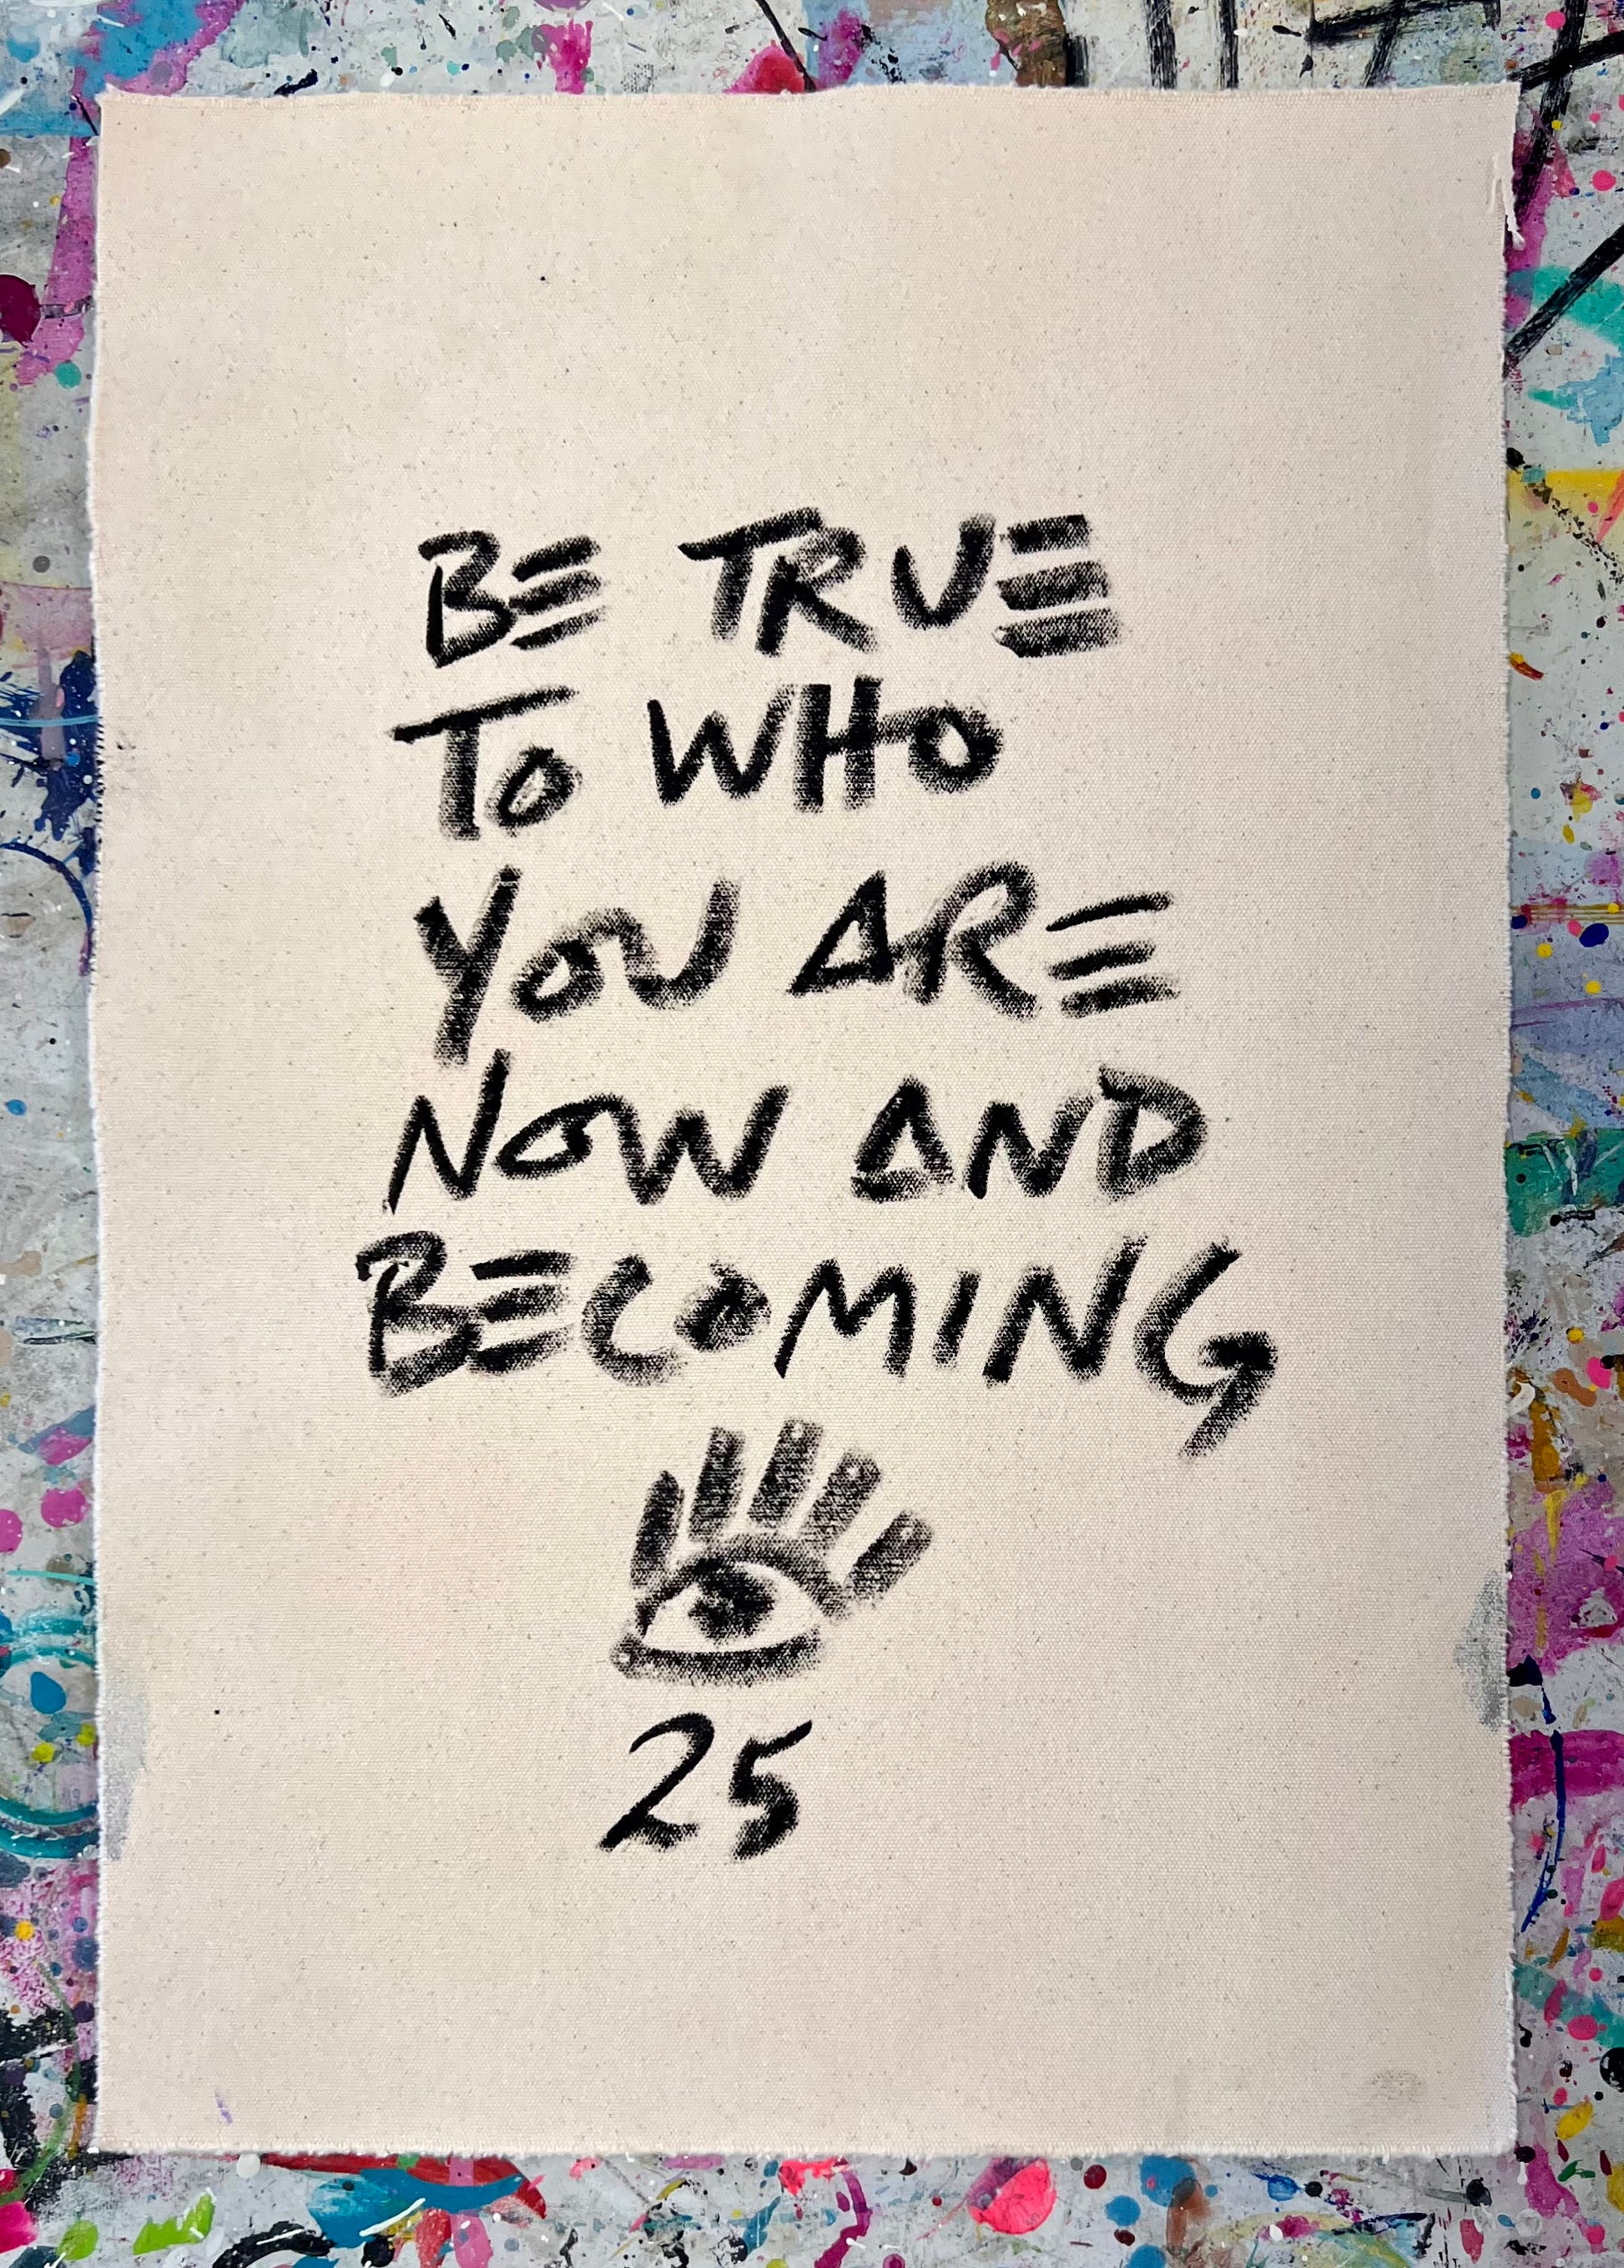 BE TRUE
TO WHO
YOU ARE
NOW AND
BECOMING
25